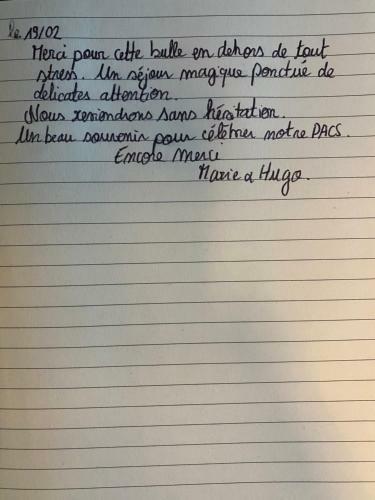 Le 19/02
Merci pour cette bulle en dehors de tout
stress. Un séjour magique ponctué de
délicates attention.
Nous reviendrons sans hésitation.
Un beau souvenir pour célébrer notre PACS.
Encore merci
Marie & Hugo.